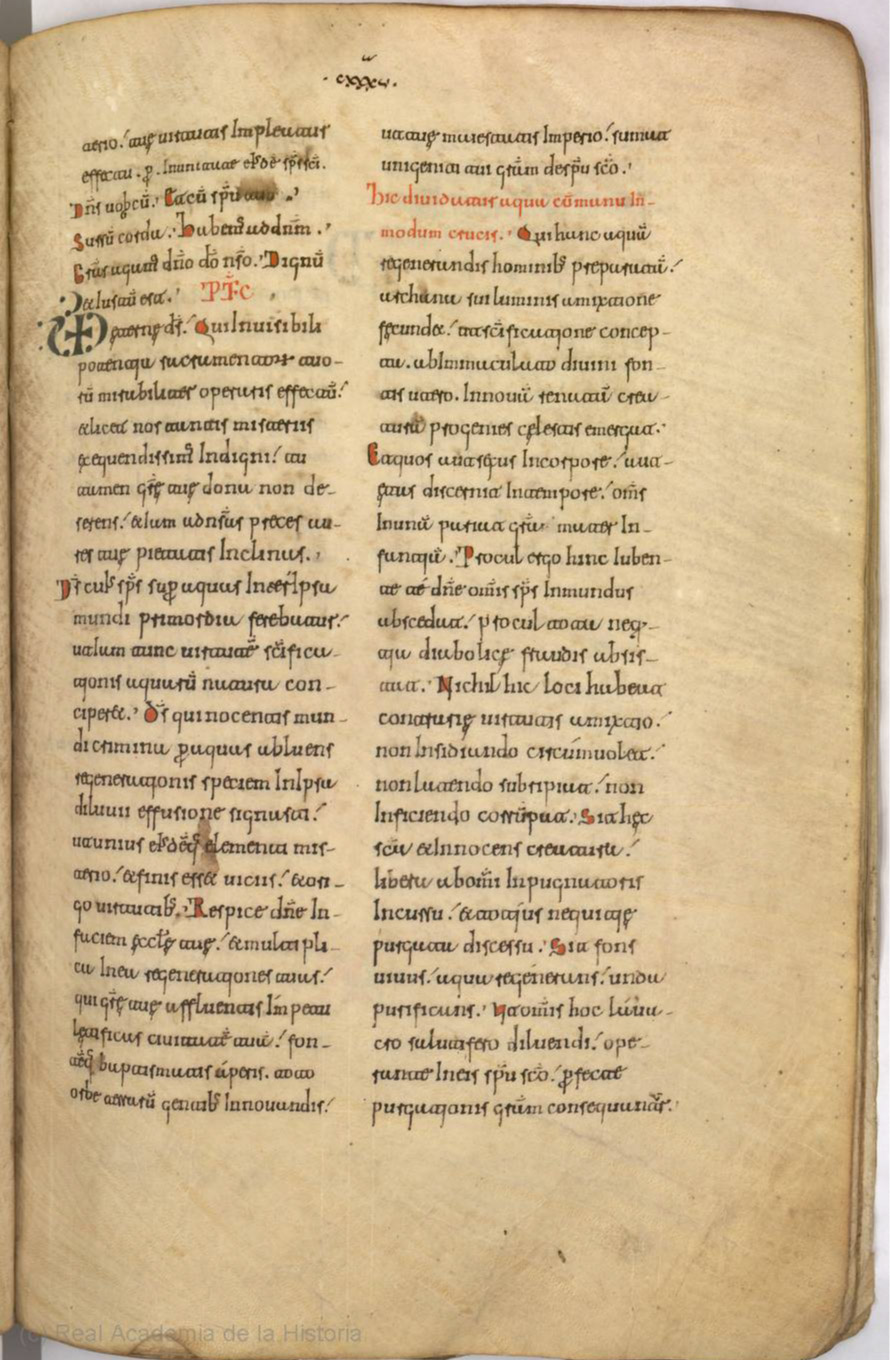 ·cxxxv·
terio. tuę uirtutis Impleatur
effectu. p̄. In unitate eiusdē sp̄s sc̄i.
Dn̄s uobcū. Et cū sp̄u tuo.
Sursū corda. Habem̄ ad dn̄m.
Gr̄as agam̄ dn̄o dō nr̄o. Dignū
& iustū est. PFC
Eternę ds̄. Qui Inuisibili
potentia sacramentor tuo-
rū mirabiliter operaris effectū.
& licet nos tantis misteriis
exequendis sim̄ Indigni. tu
tamen gr̄ę tuę dona non de-
serens. & iam ad nr̄as preces au-
res tuę pietatis Inclinas.
Ds̄ cuiꝰ sp̄s sup̄ aquas Inter Ipsa
mundi primordia ferebatur.
ut iam tunc uirtutē sc̄ifica-
tionis aquarū natura con-
ciperet. Ds̄ qui nocentis mun-
di crimina p̄ aquas abluens
regenerationis speciem In Ipsa
diluuii effusione signasti.
ut unius eiusdēq̄ elementi mis-
terio. & finis esset uiciis. & ori-
go uirtutibꝰ. Respice dn̄e In
faciem ęccl̄ę tuę. & multipli-
ca In ea regenerationes tuas.
qui gr̄ę tuę affluentis Impetu
lętificas ciuitatē tuā. fon-
tēq̄ baptismatis aperis. toto
orbe terrarū gentibꝰ Innouandis.
ut tuę maiestatis Imperio. sumat
unigeniti tui gr̄am de sp̄u sc̄o.
hic diuidatur aqua cū manu In
modum crucis. Qui hanc aquā
regenerandis hominibꝰ preparatā.
archana sui luminis amixtione
fęcundet. ut sc̄ificatione concep-
ta. ab Inmaculato diuini fon-
tis utero. In nouā renata crea-
turā progenies cęlestis emergat.
Et quos aut sexus In corpore. aut
ętas discernit In tempore. om̄s
In unā pariat gr̄a mater In-
funtiā. Procul ergo hinc Iuben-
te te dn̄e omīs sp̄s Inmundus
abscedat. procul tota neq-
tia diabolicę fraudis absis-
tat. Nichil hic loci habeat
contrarię uirtutis amixtio.
non Insidiando circūuolet.
non latendo subripiat. non
Inficiendo corrūpat. Sit hęc
sc̄a & Innocens creatura.
libera ab om̄i Inpugnatoris
Incursu. & totius nequitię
purgata discessu. Sit fons
uiuus. aqua regenerans. unda
purificans. Ut om̄s hoc laua-
cro salutifero diluendi. ope-
rante In eis sp̄u sc̄o. p̄fectē
purgationis gr̄am consequant̄r.
(c) Real Academia de la Historia